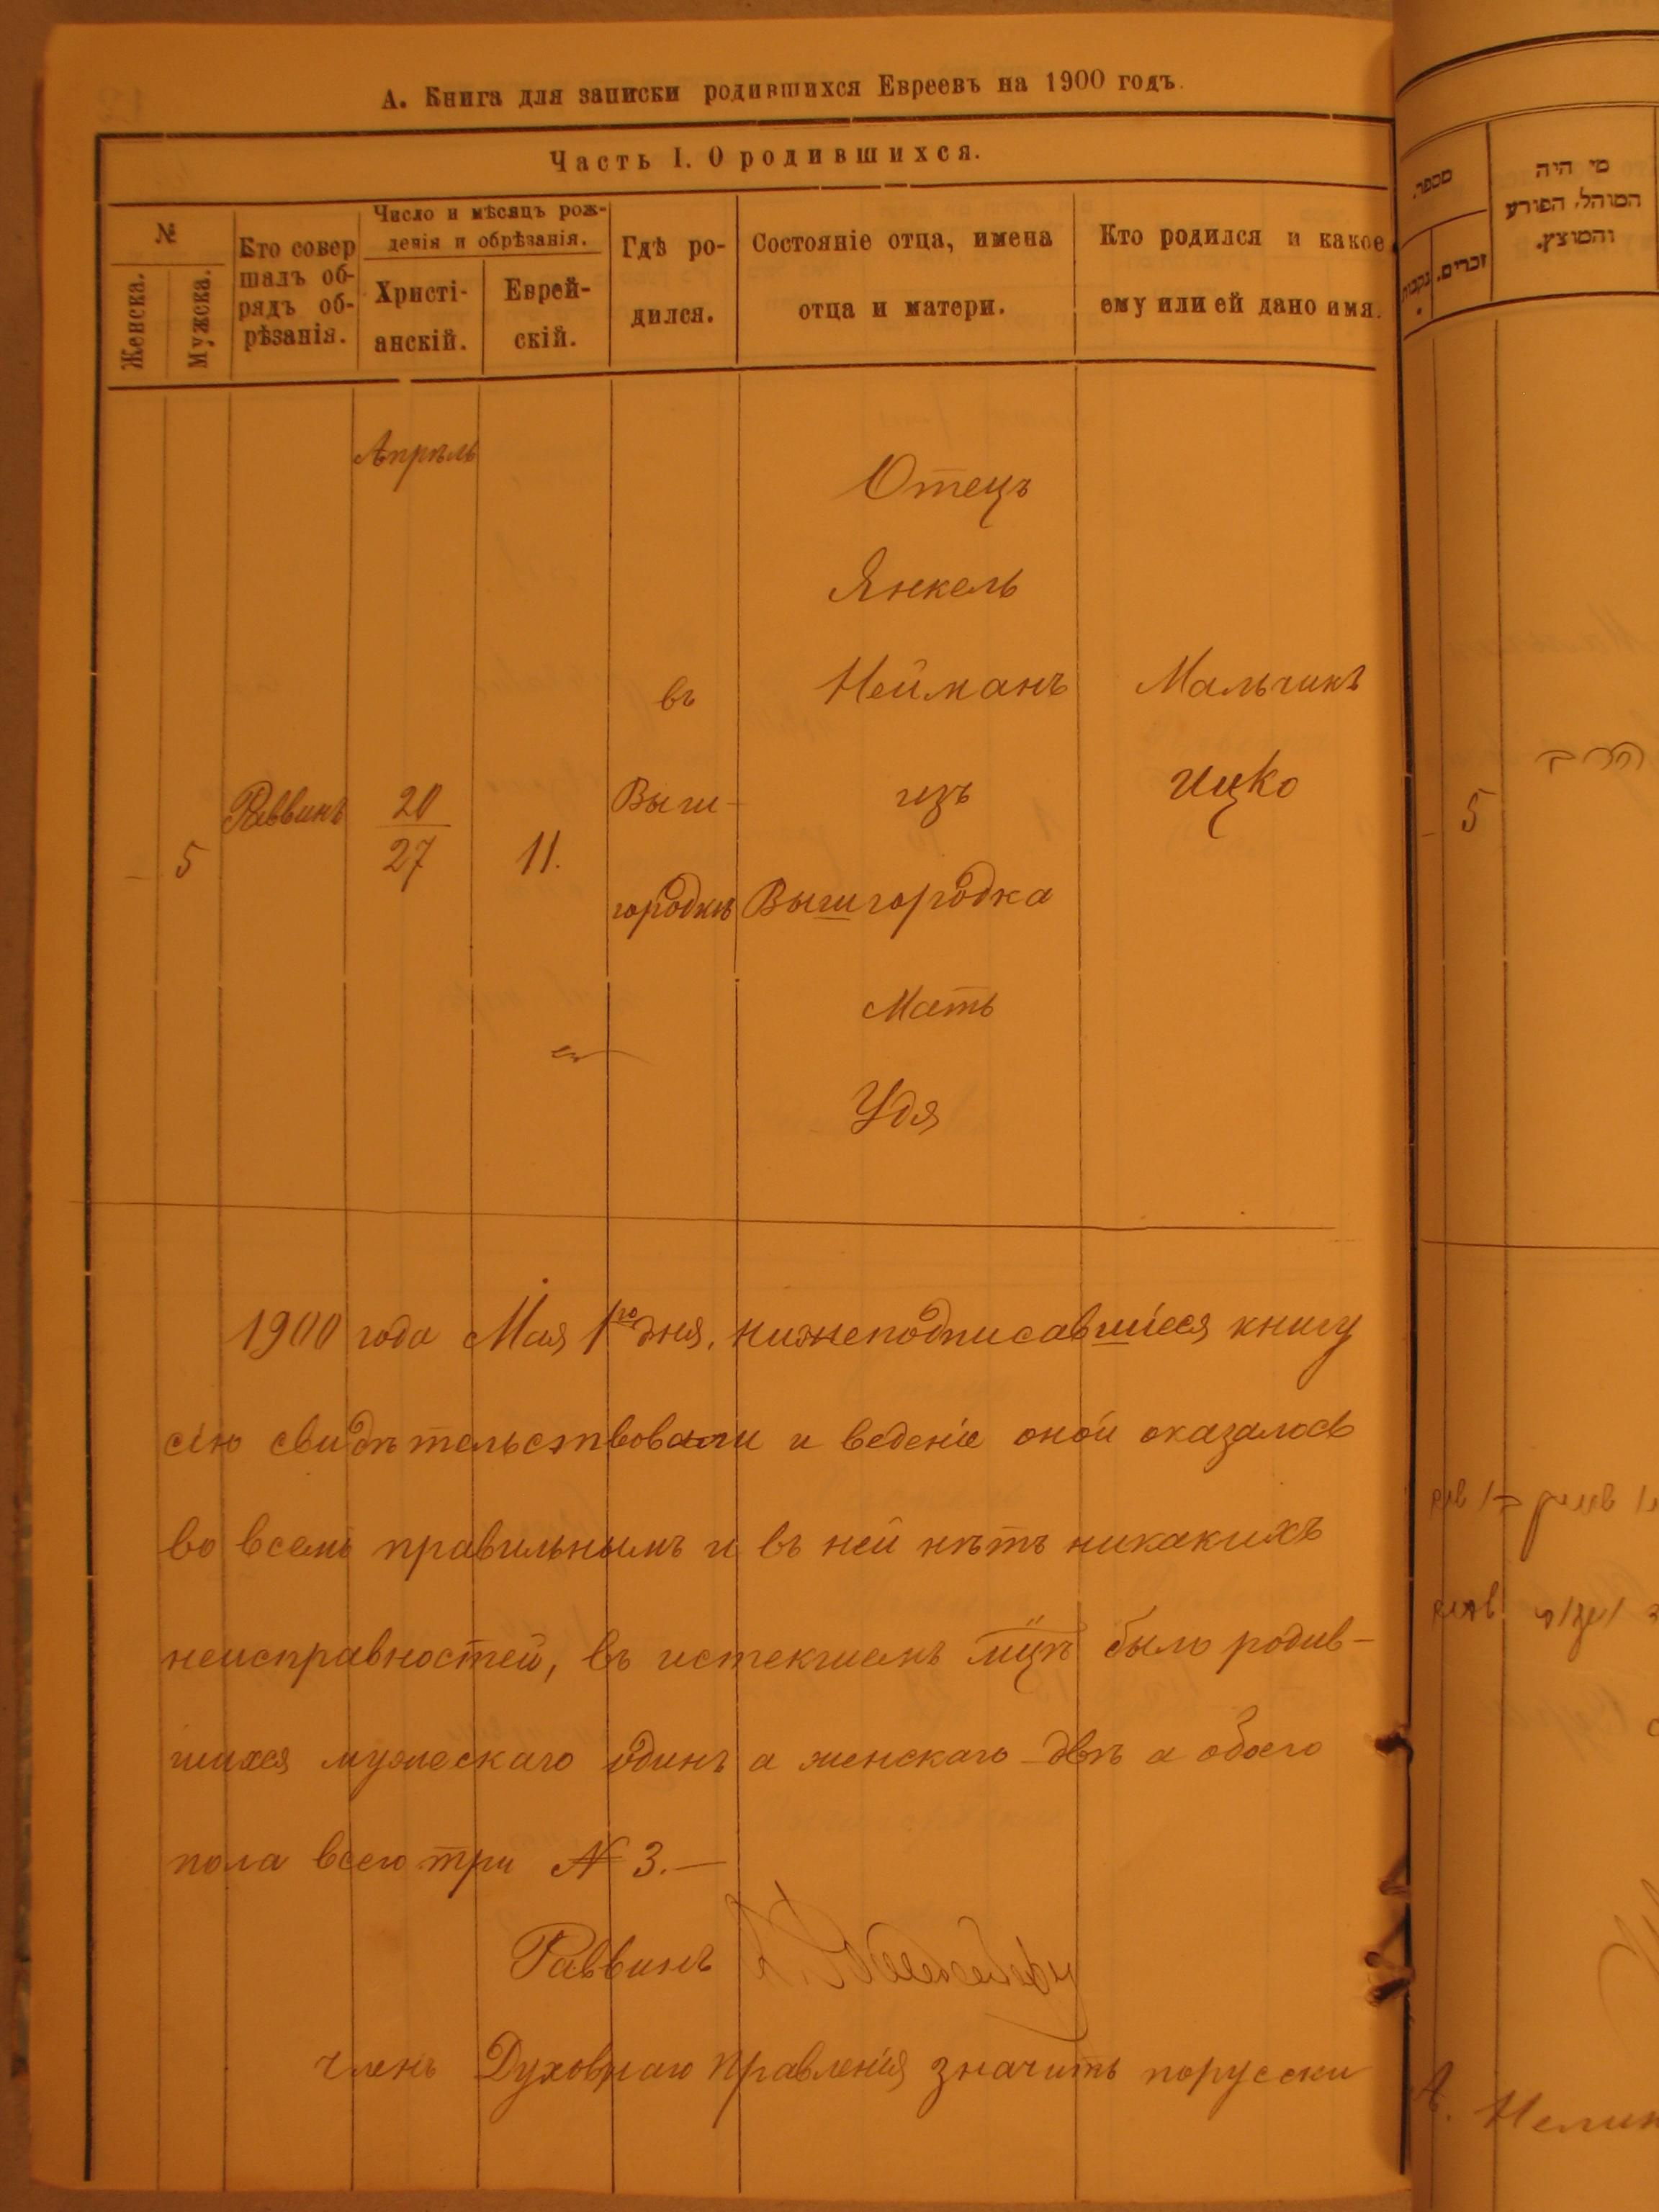 А. Книга для записки родившихся Евреевъ на 1900 годъ.
Часть I. О родившихся.
№
Женска.
Мужска.
Кто совер
шалъ об-
рядъ об-
рѣзанія.
Число и мѣсяцъ рож-
денія и обрѣзанія.
Христі-
анскій.
Еврей-
скій.
Гдѣ ро-
дился.
Состояніе отца, имена
отца и матери.
Кто родился и какое
ему или ей дано имя.
Апрѣль
5
Раввинъ
20
27
11.
въ
Выш-
городкѣ
Отецъ
Янкель
Нейманъ
изъ
Вышгородка
Мать
Удя
Мальчикъ
Ицко
1900 года Мая 1го дня, нижеподписавшіеся книгу
сію свидѣтельствовали и веденіе оной оказалось
во всемъ правильнымъ и въ ней нѣтъ никакихъ
неисправностей, въ истекшемъ мцѣ было родив-
шихся мужескаго одинъ а женскаго двѣ а обоего
пола всего три № 3.—
Раввинъ
Членъ Духовнаго Правленія значитъ порусски
מספר
נקבות
זכרים.
מי היה
המוהל, הפורע
והמוצץ.
5
הרב